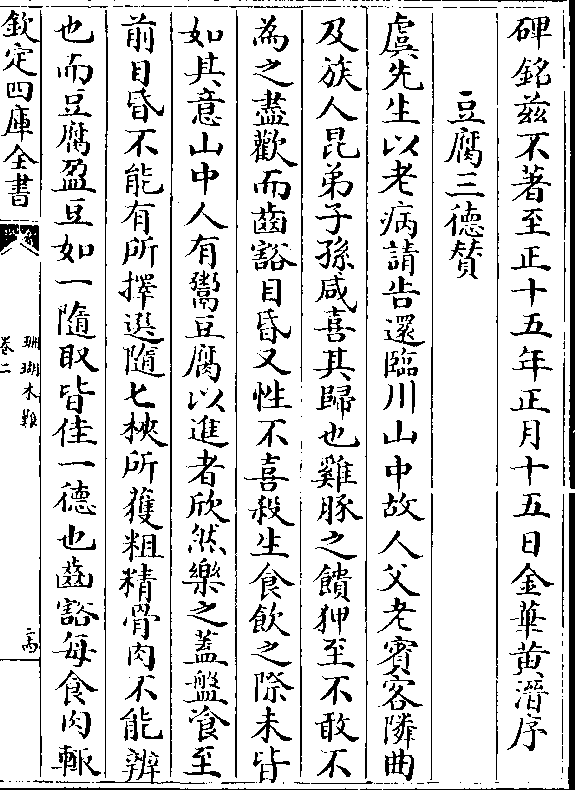 碑銘茲不著至正十五年正月十五日金華黃溍序
豆腐三德贊
虞先生以老病請告還臨川山中故人父老賓客隣曲
及族人昆弟子孫咸喜其歸也雞豚之饋狎至不敢不
為之盡歡而齒豁目昏又性不喜殺生食飲之際未皆
如其意山中人有鬻豆腐以進者欣然樂之蓋盤飡至
前目昏不能有所擇選隨匕梜所獲粗精骨肉不能辨
也而豆腐盈豆如一隨取皆佳一德也齒豁每食肉輒
欽定四庫全書
珊瑚木難
卷二